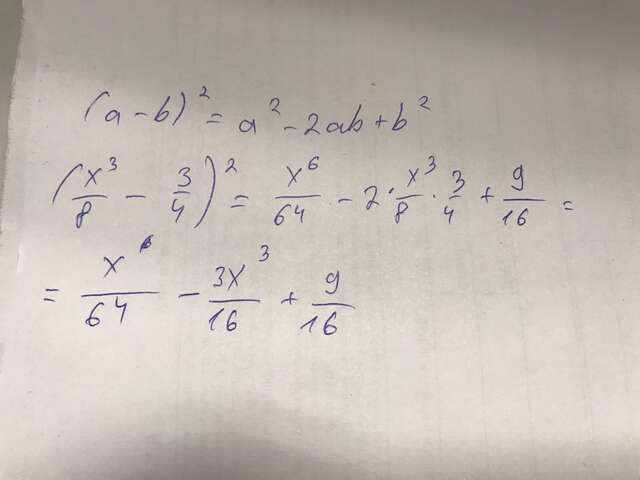 (a-b)² = a² - 2ab + b²
(x³/8 - 3/4)² = x⁶/64 - 2·x³/8·3/4 + 9/16 =
= x⁶/64 - 3x³/16 + 9/16